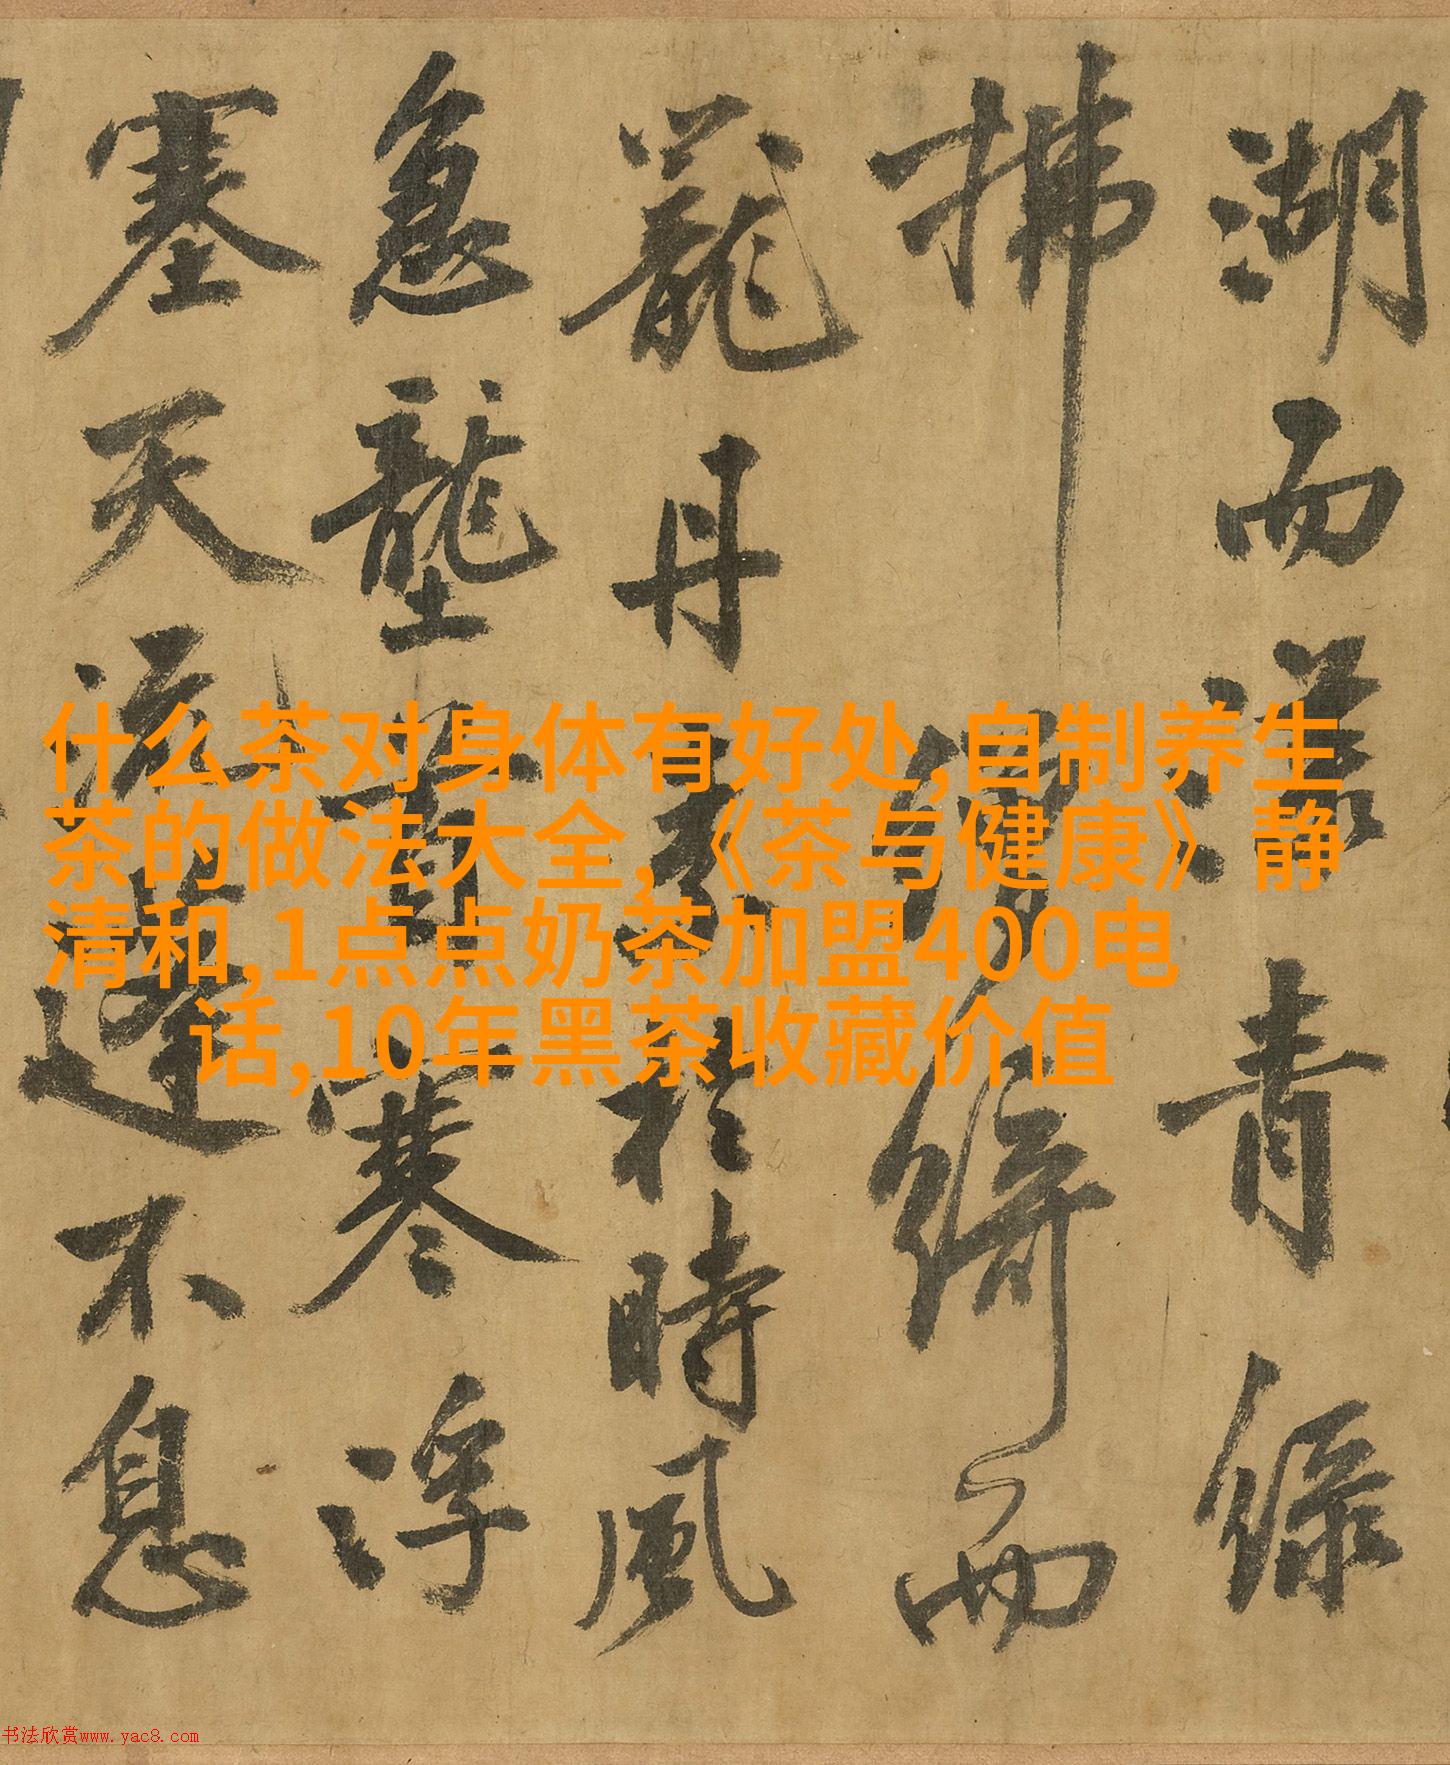 湖而漾青綠
拂綺而
籠丹於時風
急壟首寒浮
塞天流蓬不息
什么茶对身体有好处,自制养生
茶的做法大全,《茶与健康》静
清和,1点点奶茶加盟400电
话,10年黑茶收藏价值
书法欣赏www.yac8.com